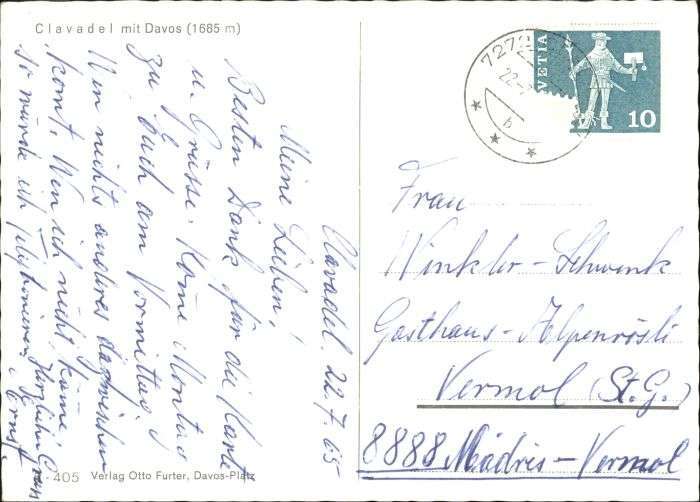 Clavadel mit Davos (1685 m)
Clavadel 22.7.65
Meine Lieben!
Besten Dank für die Karte
u. Grüsse. Kome Montag
zu Euch am Vormittag.
Wen nichts anderes dazwischen
komt. Wen ich nicht kome,
so würde ich telephonieren. Herzlichen Gruss
Ernst.
405 Verlag Otto Furter, Davos-Platz
7272
22.-7
b
HELVETIA
10
Frau
Winkler-Schwenk
Gasthaus-Alpenrösli
Vermol (St.G.)
8888 Mädris-Vermol